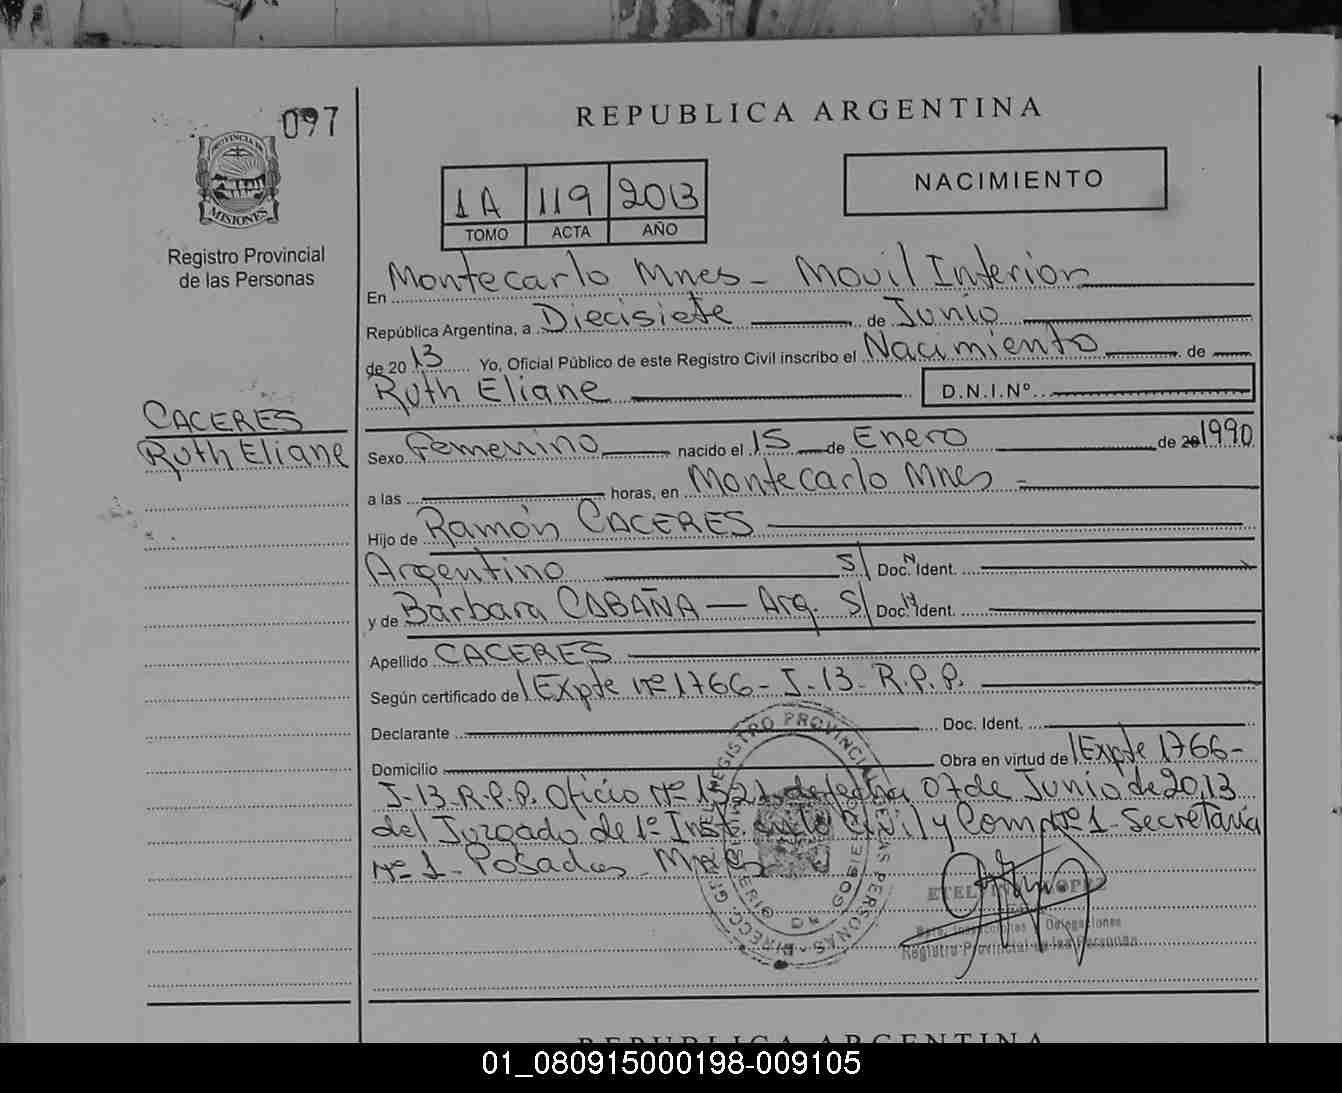 097
PROVINCIA DE
MISIONES
Registro Provincial
de las Personas
CACERES
Ruth Eliane
REPUBLICA ARGENTINA
1A 119 2013
TOMO ACTA AÑO
NACIMIENTO
En Montecarlo Mnes - Movil Interior
República Argentina, a Diecisiete de Junio
de 2013 Yo, Oficial Público de este Registro Civil inscribo el Nacimiento de
Ruth Eliane D.N.I.Nº
Sexo Femenino nacido el 15 de Enero de 20 1990
a las horas, en Montecarlo Mnes -
Hijo de Ramón CACERES
Argentino S/ Doc. N Ident.
y de Bárbara CABAÑA - Arg. S/ Doc. N Ident.
Apellido CACERES
Según certificado de Expte nº 1766 - J-13- R.P.P.
Declarante Doc. Ident.
Domicilio Obra en virtud de Expte 1766-
J-13-R.P.P. Oficio Nº 1521 de fecha 07 de Junio de 2013
del Juzgado de 1º Inst. en lo Civil y Com. Nº 1 - Secretaría
Nº 1 - Posadas - Mnes
REGISTRO PROVINCIAL DE LAS PERSONAS - DIRECC. GRAL.
MINISTERIO DE GOBIERNO
LOPEZ
Delegaciones
Registro Provincial de las Personas
REPUBLICA ARGENTINA
01_080915000198-009105